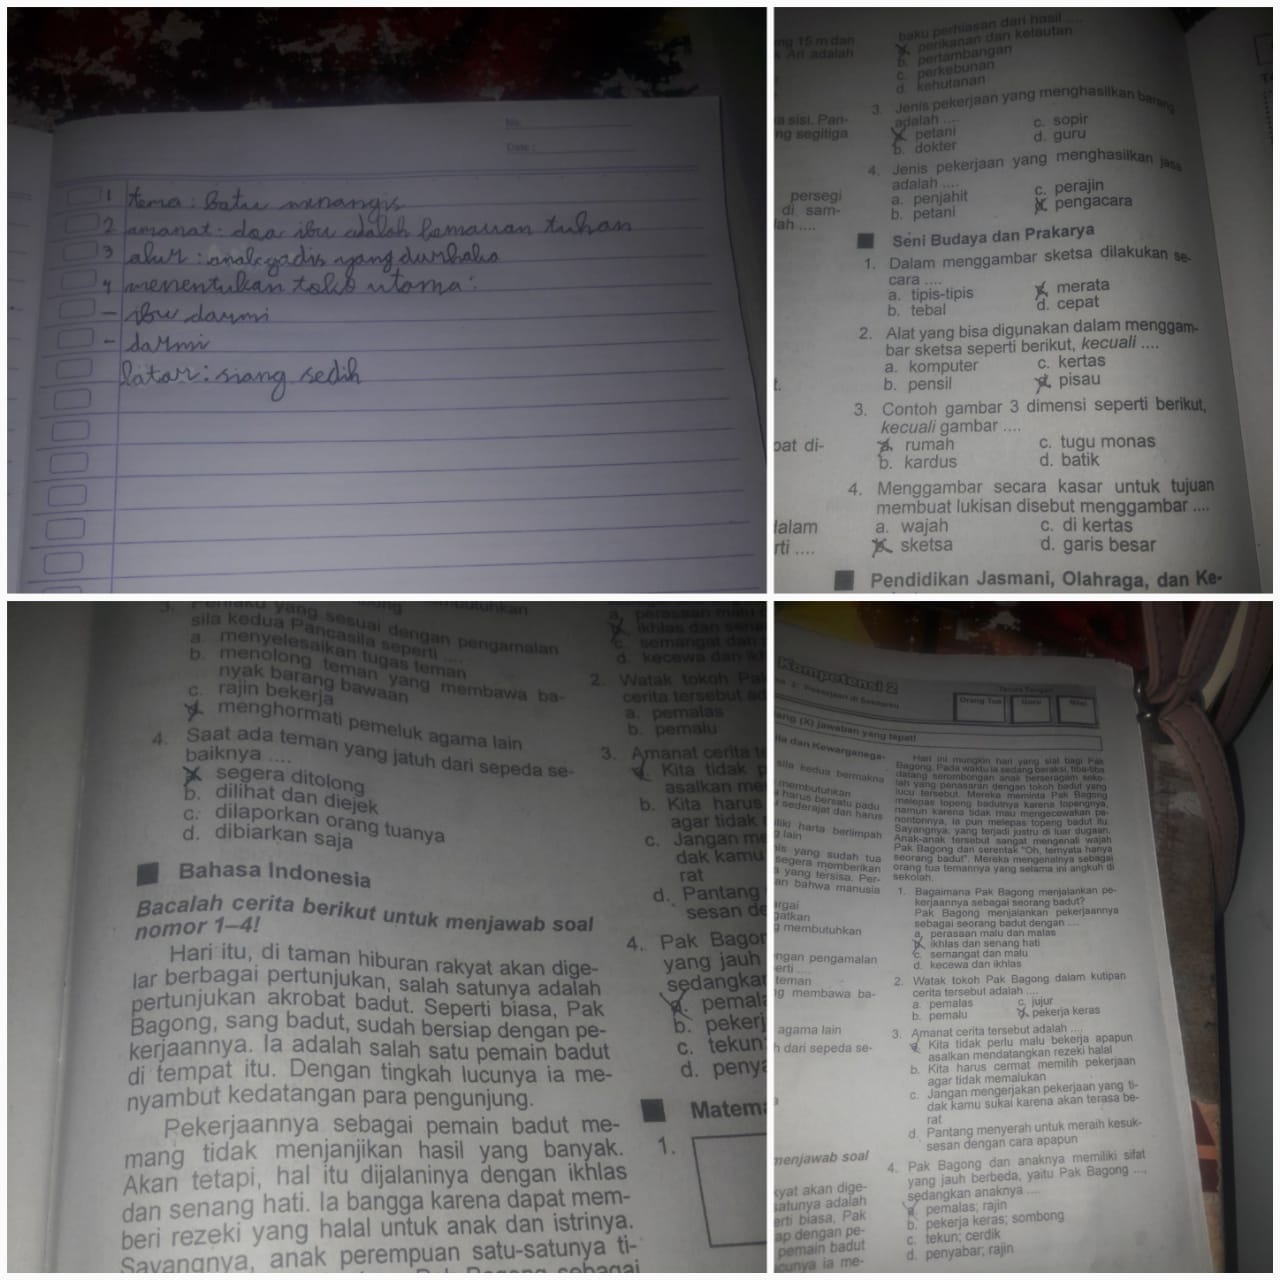 No.
Date :
1 tema : Batu menangis
2 amanat : doa ibu adalah kemauan tuhan
3 alur : anak gadis yang durhaka
4 menentukan utama :
– ibu darmi
– darmi
latar : siang sedih
ng 15 m dan
Ari adalah
a sisi. Pan-
ng segitiga
persegi
di sam-
lah ....
pat di-
dalam
rti ....
baku perhiasan dari hasil ....
a. perikanan dan kelautan
b. pertambangan
c. perkebunan
d. kehutanan
3. Jenis pekerjaan yang menghasilkan barang
adalah ....
a. petani c. sopir
b. dokter d. guru
4. Jenis pekerjaan yang menghasilkan jasa
adalah ....
a. penjahit c. perajin
b. petani d. pengacara
Seni Budaya dan Prakarya
1. Dalam menggambar sketsa dilakukan se-
cara ....
a. tipis-tipis c. merata
b. tebal d. cepat
2. Alat yang bisa digunakan dalam menggam-
bar sketsa seperti berikut, kecuali ....
a. komputer c. kertas
b. pensil d. pisau
3. Contoh gambar 3 dimensi seperti berikut,
kecuali gambar ....
a. rumah c. tugu monas
b. kardus d. batik
4. Menggambar secara kasar untuk tujuan
membuat lukisan disebut menggambar ....
a. wajah c. di kertas
b. sketsa d. garis besar
Pendidikan Jasmani, Olahraga, dan Ke-
3. Perilaku yang sesuai dengan pengamalan
sila kedua Pancasila seperti ....
a. menyelesaikan tugas teman
b. menolong teman yang membawa ba-
nyak barang bawaan
c. rajin bekerja
d. menghormati pemeluk agama lain
4. Saat ada teman yang jatuh dari sepeda se-
baiknya ....
a. segera ditolong
b. dilihat dan diejek
c. dilaporkan orang tuanya
d. dibiarkan saja
Bahasa Indonesia
Bacalah cerita berikut untuk menjawab soal
nomor 1–4!
Hari itu, di taman hiburan rakyat akan dige-
lar berbagai pertunjukan, salah satunya adalah
pertunjukan akrobat badut. Seperti biasa, Pak
Bagong, sang badut, sudah bersiap dengan pe-
kerjaannya. Ia adalah salah satu pemain badut
di tempat itu. Dengan tingkah lucunya ia me-
nyambut kedatangan para pengunjung.
Pekerjaannya sebagai pemain badut me-
mang tidak menjanjikan hasil yang banyak.
Akan tetapi, hal itu dijalaninya dengan ikhlas
dan senang hati. Ia bangga karena dapat mem-
beri rezeki yang halal untuk anak dan istrinya.
Sayangnya, anak perempuan satu-satunya ti-
a. perasaan malu
b. ikhlas dan sena
c. semangat dan
d. kecewa dan ikh
2. Watak tokoh Pak
cerita tersebut ad
a. pemalas
b. pemalu
3. Amanat cerita t
a. Kita tidak p
asalkan me
b. Kita harus
agar tidak
c. Jangan me
dak kamu
rat
d. Pantang
sesan de
4. Pak Bagon
yang jauh
sedangkan
a. pemala
b. pekerj
c. tekun
d. penya
Matema
1.
Kompetensi 2
Pekerjaan di Sekitarku
Tanda Tangan
Orang Tua Guru Nilai
ang (X) jawaban yang tepat!
ila dan Kewarganega-
sila kedua bermakna
membutuhkan
harus bersatu padu
sederajat dan harus
iliki harta berlimpah
lain
is yang sudah tua
segera memberikan
yang tersisa. Per-
an bahwa manusia
argai
gatkan
g membutuhkan
ngan pengamalan
erti ....
teman
ng membawa ba-
agama lain
h dari sepeda se-
menjawab soal
kyat akan dige-
satunya adalah
erti biasa, Pak
ap dengan pe-
pemain badut
cunya ia me-
Hari ini mungkin hari yang sial bagi Pak
Bagong. Pada waktu ia sedang beraksi, tiba-tiba
datang serombongan anak berseragam seko-
lah yang penasaran dengan tokoh badut yang
lucu tersebut. Mereka meminta Pak Bagong
melepas topeng badutnya karena topengnya,
namun karena tidak mau mengecewakan pe-
nontonnya, ia pun melepas topeng badut itu.
Sayangnya, yang terjadi justru di luar dugaan.
Anak-anak tersebut sangat mengenali wajah
Pak Bagong dan serentak "Oh, ternyata hanya
seorang badut". Mereka mengenalnya sebagai
orang tua temannya yang selama ini angkuh di
sekolah.
1. Bagaimana Pak Bagong menjalankan pe-
kerjaannya sebagai seorang badut?
Pak Bagong menjalankan pekerjaannya
sebagai seorang badut dengan ....
a. perasaan malu dan malas
b. ikhlas dan senang hati
c. semangat dan malu
d. kecewa dan ikhlas
2. Watak tokoh Pak Bagong dalam kutipan
cerita tersebut adalah ....
a. pemalas c. jujur
b. pemalu d. pekerja keras
3. Amanat cerita tersebut adalah ....
a. Kita tidak perlu malu bekerja apapun
asalkan mendatangkan rezeki halal
b. Kita harus cermat memilih pekerjaan
agar tidak memalukan
c. Jangan mengerjakan pekerjaan yang ti-
dak kamu sukai karena akan terasa be-
rat
d. Pantang menyerah untuk meraih kesuk-
sesan dengan cara apapun
4. Pak Bagong dan anaknya memiliki sifat
yang jauh berbeda, yaitu Pak Bagong ...,
sedangkan anaknya ....
a. pemalas; rajin
b. pekerja keras; sombong
c. tekun; cerdik
d. penyabar; rajin